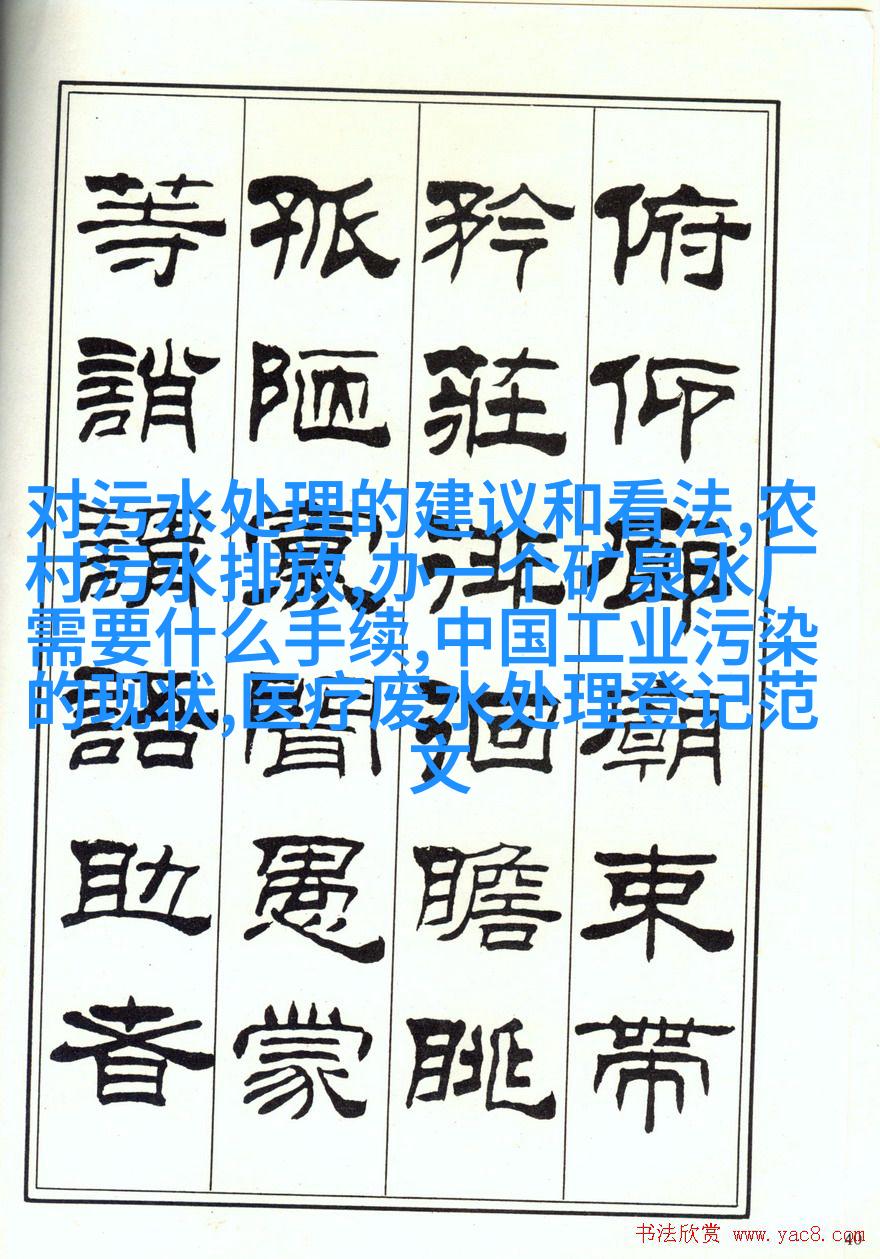 俯仰廊廟束帶
矜莊徘徊瞻眺
孤陋寡聞愚蒙
等誚謂語助者
对污水处理的建议和看法,农
村污水排放,办一个矿泉水厂
需要什么手续,中国工业污染
的现状,医疗废水处理登记范
文
书法欣赏 www.yac8.com
40